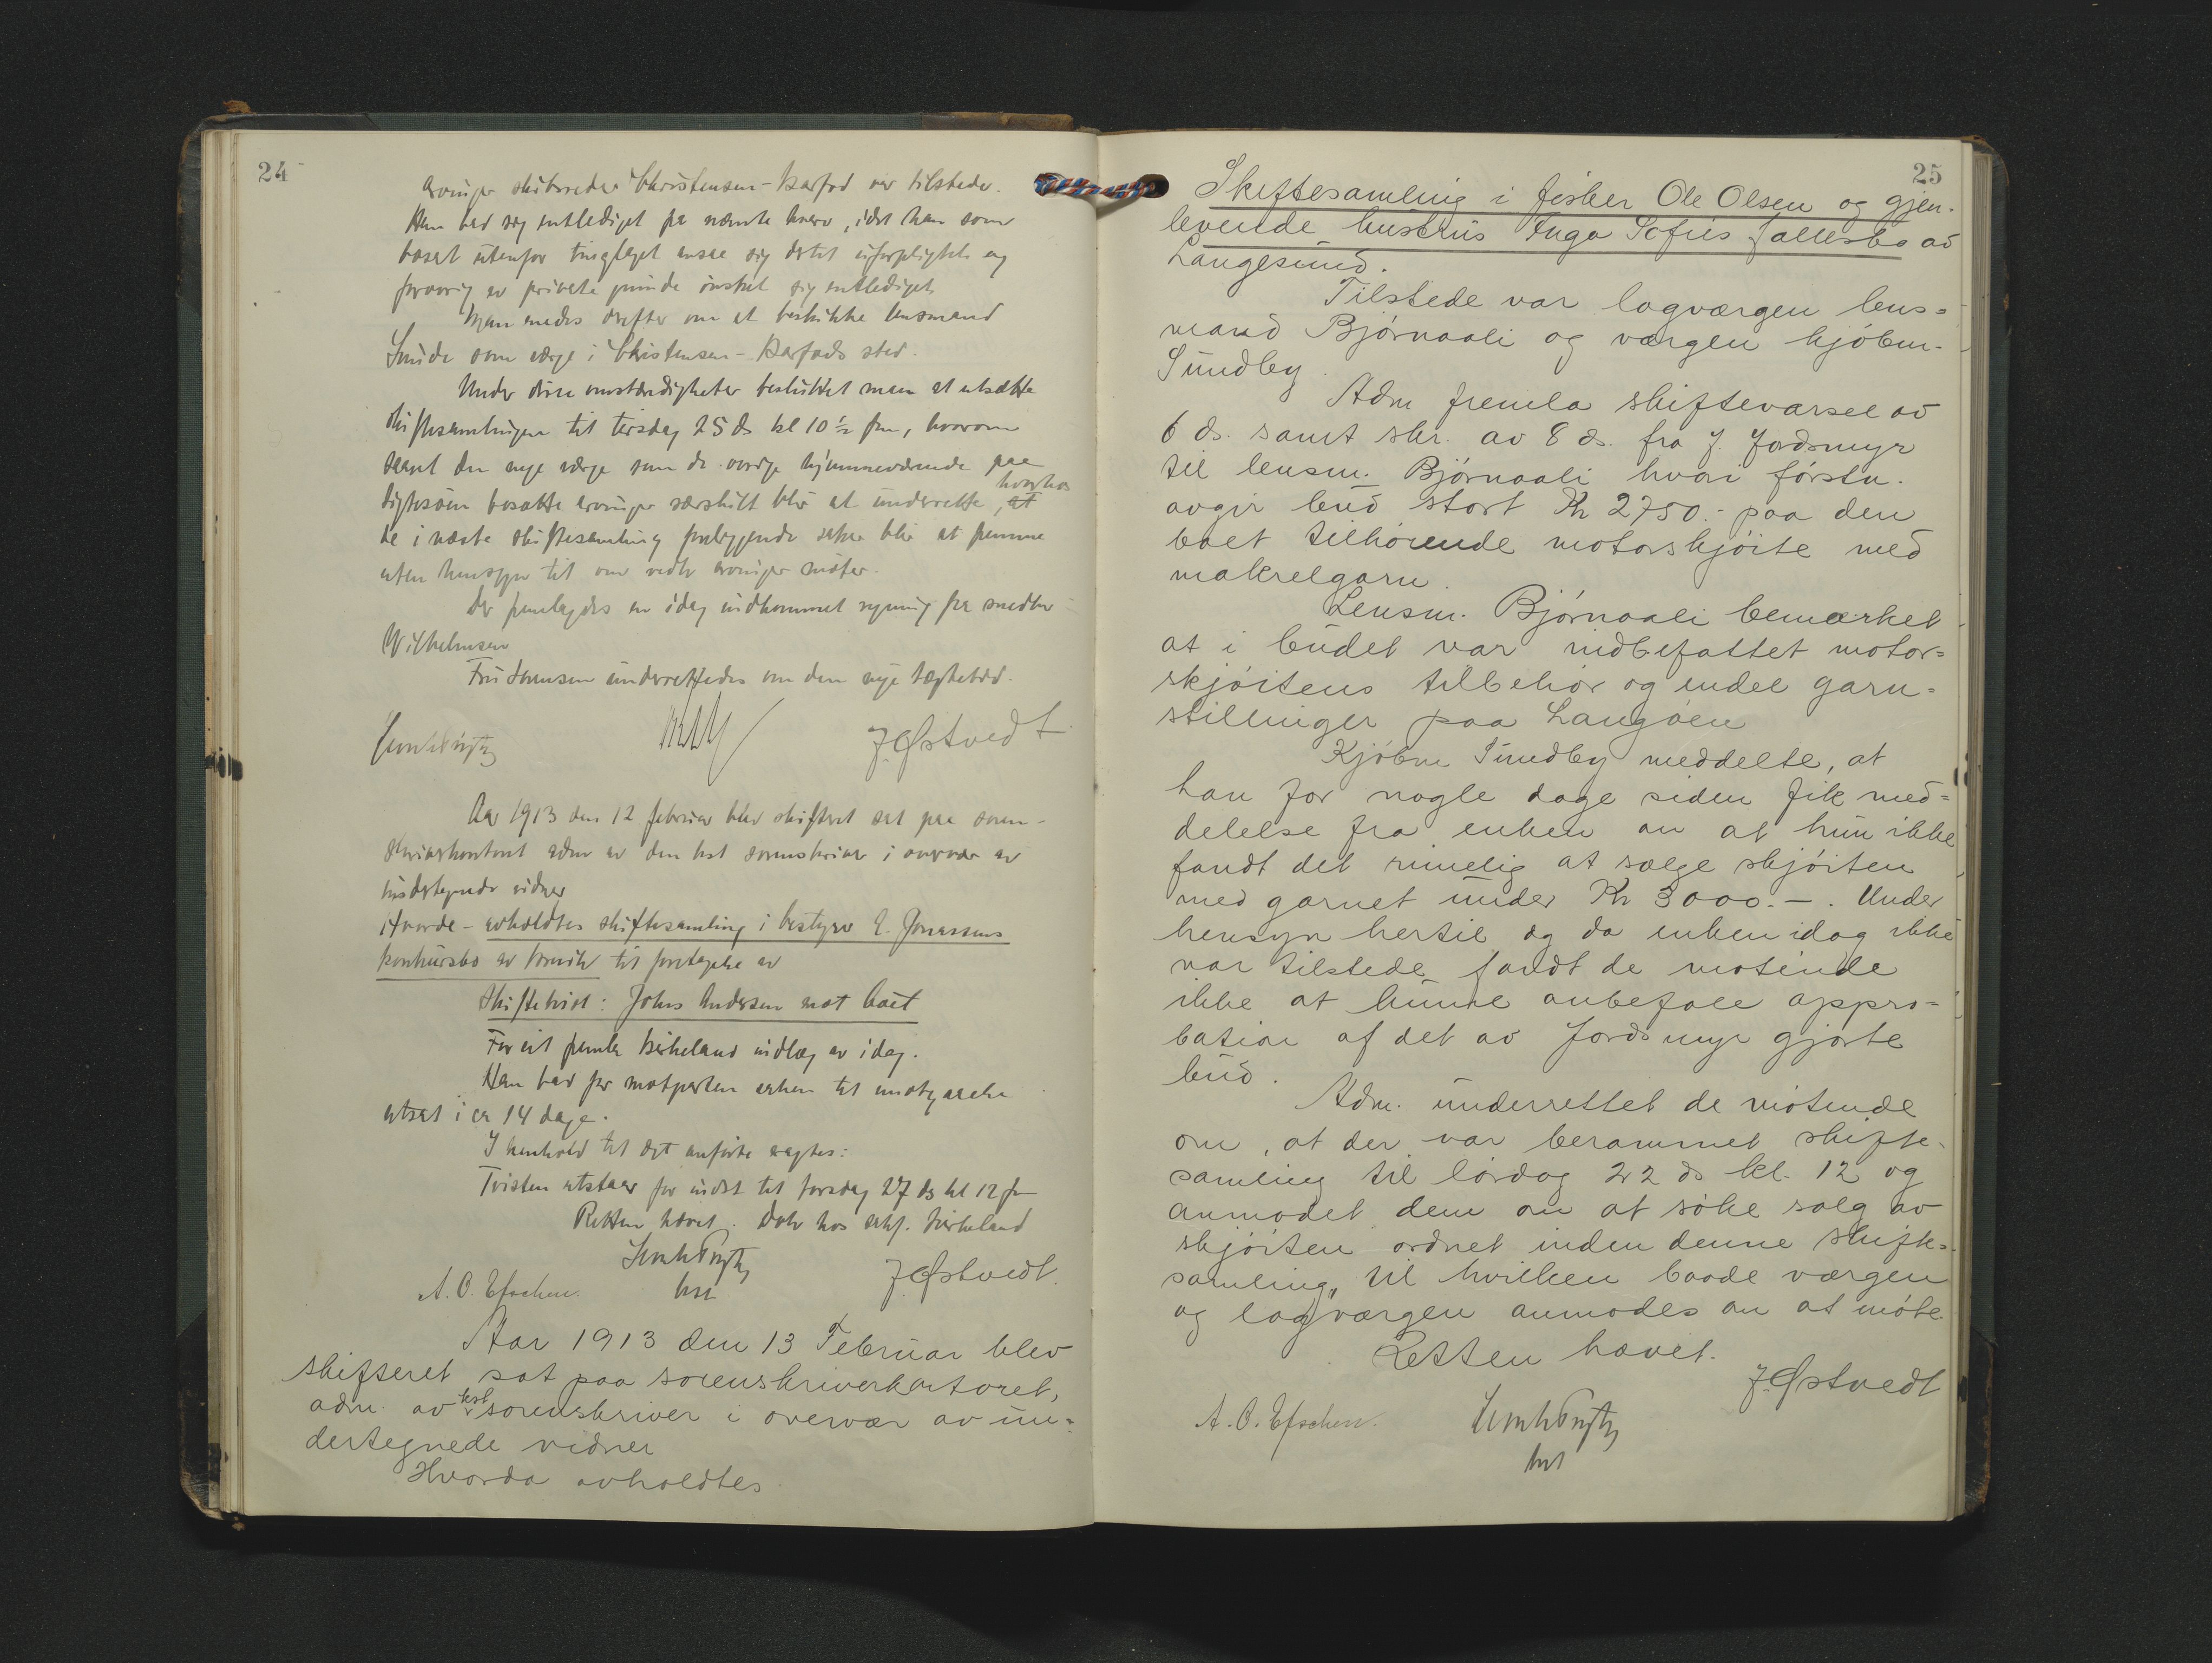 24
arvinger skibsreder Christensen-Barfod var tilstede.
Han bad sig entlediget fra nævnte hverv, idet han som
bosat utenfor tinglaget ansaa sig dertil uforpligtet og
forøvrig av private grunde ønsket sig entlediget
Man enedes derefter om at beskikke lensmand
som værge i Christensen-Barfods sted.
Under disse omstændigheter besluttet man at utsætte
skiftesamlingen til tirsdag 25 ds kl 10 ½ fm, hvorom
saavel den nye værge som de øvrige hjemmeværende paa
bosatte arvinger særskilt blir at underrette, at hvorhos
de i næste skiftesamling foreliggende saker blir at fremme
uten hensyn til om vedk arvinger møter.
Der fremlagdes en idag indkommet regning fra snedker
Wilhelmsen
Fru underrettedes om den nye tægtedag.
J. Østvedt
Aar 1913 den 12 februar blev skifteret sat paa soren-
skriverkontoret adm av den kst sorenskriver i overvær av
undertegnede vidner
Hvorda - avholdtes skiftesamling i bestyrer E. Jonassens
konkursbo av Brevik til foretagelse av
Skiftetvist: Johs Andersen mot boet
For cit fremla Birkeland indlæg av idag.
Han bad for motparten saken til imøtegaaelse
utsat i ca 14 dage.
I henhold til det anførte vagtes:
Tvisten utstaar for indst til torsdag 27 ds kl 12 fm
Retten hævet. Dok hos sakf. Birkeland
A. O. Efschen. kst J. Østvedt.
Aar 1913 den 13 Februar blev
skifteret sat paa sorenskriverkontoret,
adm. av kst sorenskriver i overvær av un=
dertegnede vidner
Hvorda avholdtes
25
Skiftesamling i fisker Ole Olsen og gjen-
levende hustrus Inga Sofies fællesbo av
Langesund.
Tilstede var lagværgen lens=
mand Bjørnaali og værgen kjøbm.
Sundby.
Adm fremla skiftevarsel av
6 ds. samt skr. av 8 ds. fra J. Jordsmyr
til lensm. Bjørnaali hvori førstn.
avgir bud stort Kr 2750.- paa den
boet tilhørende motorskjøite med
makrelgarn.
Lensm. Bjørnaali bemærket
at i budet var indbefattet motor=
skjøitens tilbehør og endel garn=
stillinger paa Langøen
Kjøbm Sundby meddelte, at
han for nogle dage siden fik med=
delelse fra enken om at hun ikke
fandt det rimelig at sælge skjøiten
med garnet under Kr 3000.-. Under
hensyn hertil og da enken idag ikke
var tilstede fandt de møtende
ikke at kunne anbefale appro=
bation af det av Jordsmyr gjorte
bud.
Adm. underrettet de møtende
om, at der var berammet skifte=
samling til lørdag 22 ds kl. 12 og
anmodet dem om at søke salg av
skjøiten ordnet inden denne skifte=
samling, til hvilken baade værgen
og lagværgen anmodes om at møte.
Retten hævet.
J. Østvedt
A. O. Efschen.
kst